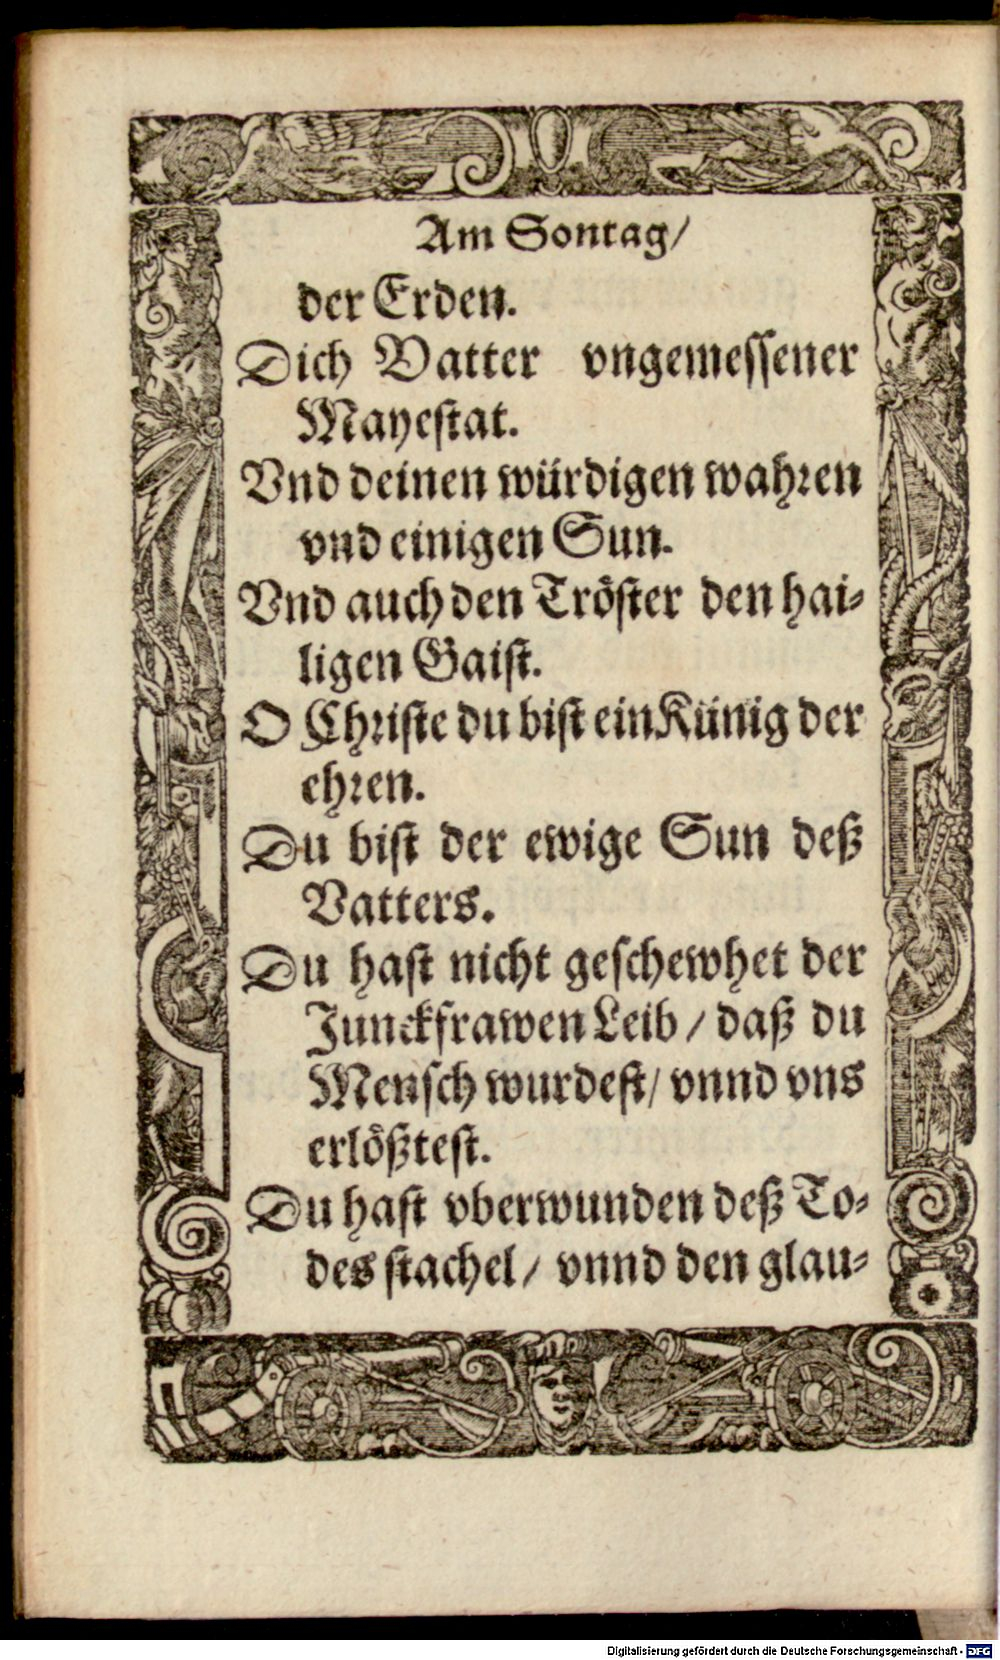 Am Sontag/
der Erden.
Dich Vatter vngemessener
Mayestat.
Vnd deinen würdigen wahren
vnd einigen Sun.
Vnd auch den Tröster den hai-
ligen Gaist.
O Christe du bist ein Künig der
ehren.
Du bist der ewige Sun deß
Vatters.
Du hast nicht geschewhet der
Junckfrawen Leib / daß du
Mensch wurdest/ vnnd vns
erlößtest.
Du hast vberwunden deß To-
des stachel/ vnnd den glau-
Digitalisierung gefördert durch die Deutsche Forschungsgemeinschaft - DFG